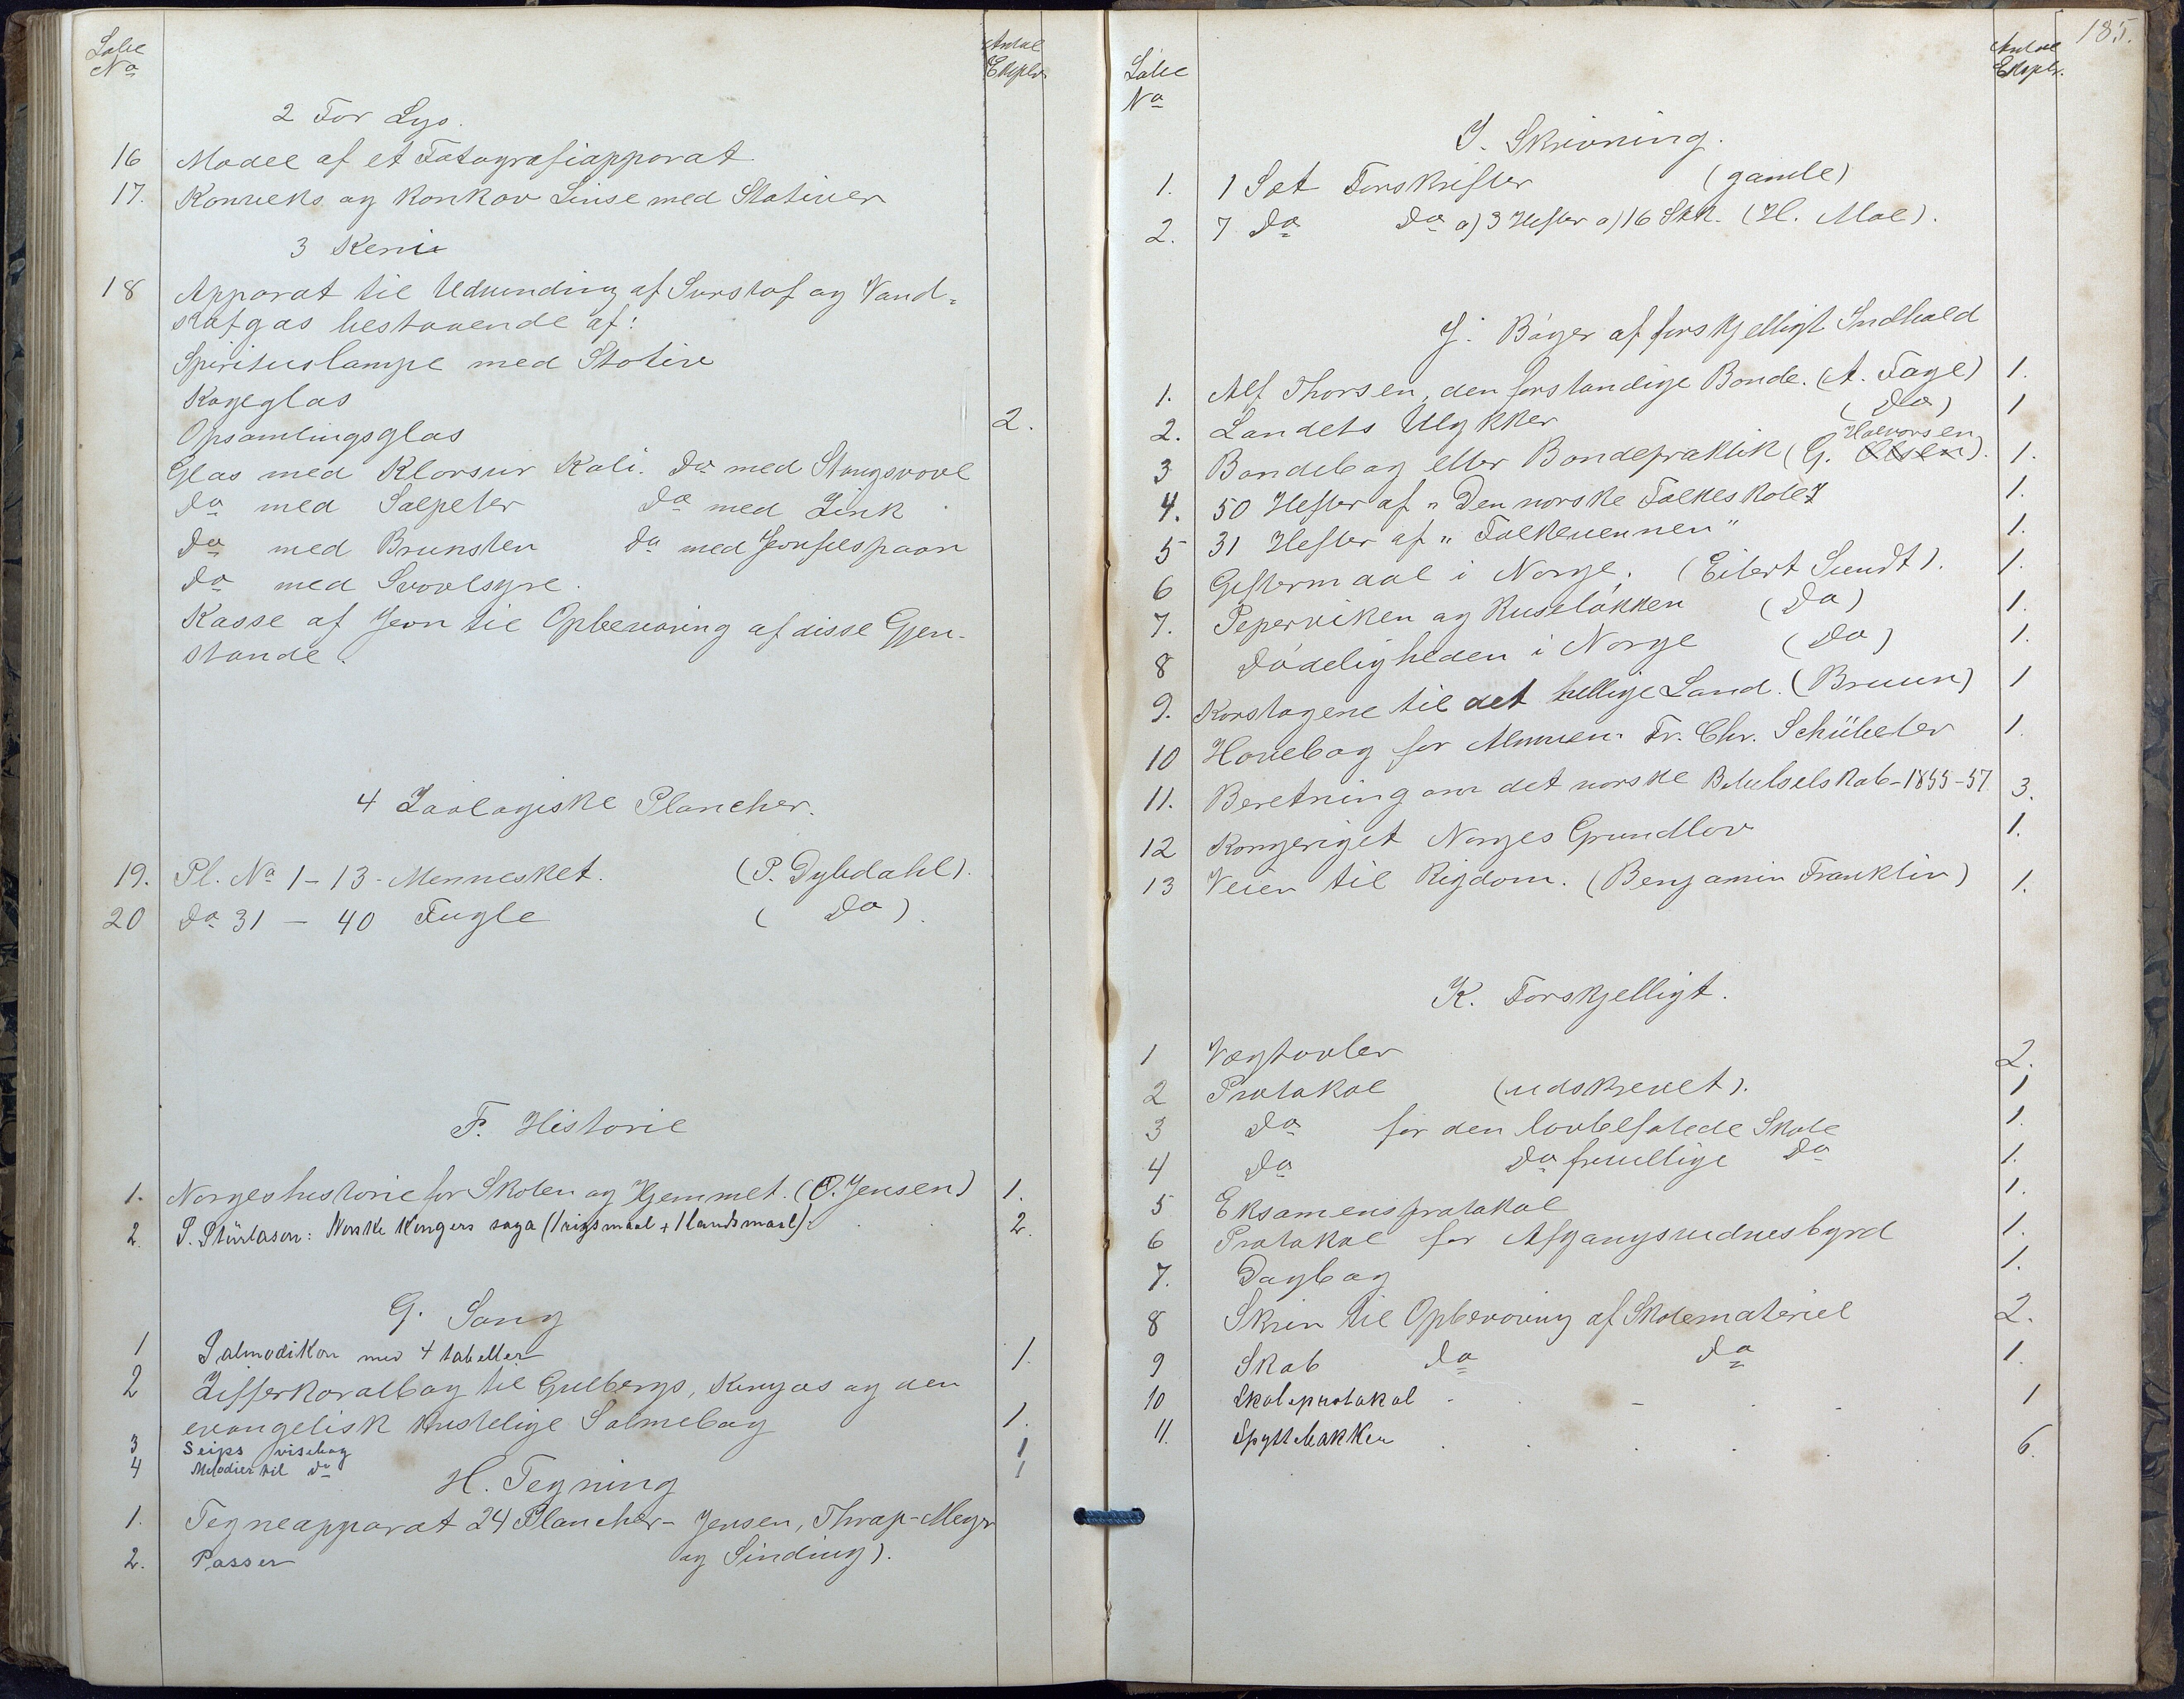 Løbe No
Antal Ekspl.
2 For Lys.
16 Model af et Fotografiapparat
17. Konveks og konkav Linse med Stativer
3 Kemi
18 Apparat til Udvinding af Surstof og Vand-
stofgas bestaaende af:
Spirituslampe med Stativ
Kogeglas
Opsamlingsglas 2.
Glas med Klorsur Kali. Do med Stangsvovl
Do med Salpeter Do med Zink
Do med Brunsten Do med Jernfilspaan
Do med Svovlsyre.
Kasse af Jern til Opbevaring af disse Gjen-
stande.
4 Zoologiske Plancher.
19. Pl. No 1-13- Mennesket. (P. Dybdahl).
20 Do 31 - 40 Fugle ( Do ).
F. Historie
1. Norgeshistorie for Skolen og Hjemmet. (O. Jensen) 1.
2. S. Sturlason: Norske Kongers saga (1 rigsmaal + 1 landsmaal). 2.
G. Sang
1 Salmodikon med 4 tabeller 1.
2 Zifferkoralbog til Gulbergs, Kingos og den
evangelisk kristelige Salmebog 1.
3 Seips visebog 1
4 Melodier til do 1
H. Tegning
1. Tegneapparat 24 Plancher- Jensen, Thrap-Meyr
2. Passer og Sinding).
185.
Løbe No
Antal Ekspl.
I. Skrivning.
1. 1 Sæt Forskrifter (gamle)
2. 7 Do Do a) 3 Hefter a) 16 Skr. (H. Moe).
J. Bøger af forskjelligt Indhold
1. Alf Thorsen, den forstandige Bonde. (A. Faye) 1.
2. Landets Ulykker (Do) 1
Halvorsen
3 Bondebog eller Bondepraktik (G. Olsen). 1.
4. 50 Hefter af "Den norske Folkeskole" 1.
5 31 Hefter af "Folkevennen" 1.
6 Giftermaal i Norge. (Eilert Sundt). 1.
7. Piperviken og Ruseløkken (Do) 1.
8 Dødeligheden i Norge (Do) 1.
9. Korstogene til det hellige Land. (Bruun) 1
10 Havebog for Almuen. Fr. Chr. Schübeler 1.
11. Beretning om det norske Bibelselskab-1855-57 3.
12 Kongeriget Norges Grundlov 1.
13 Veien til Rigdom. (Benjamin Franklin) 1.
K. Forskjelligt.
1 Vægtavler 2.
2 Protokol (udskrevet). 1
3 Do for den lovbefalede Skole 1.
4 Do Do frivillige Do 1.
5 Eksamensprotokol 1.
6 Protokol for Afgangsvidnesbyrd 1.
7. Dagbog 1.
8 Skrin til Opbevaring af Skolemateriel 2.
9 Skab Do Do 1.
10 Skoleprotokol 1
11. Spyttebakker 6.